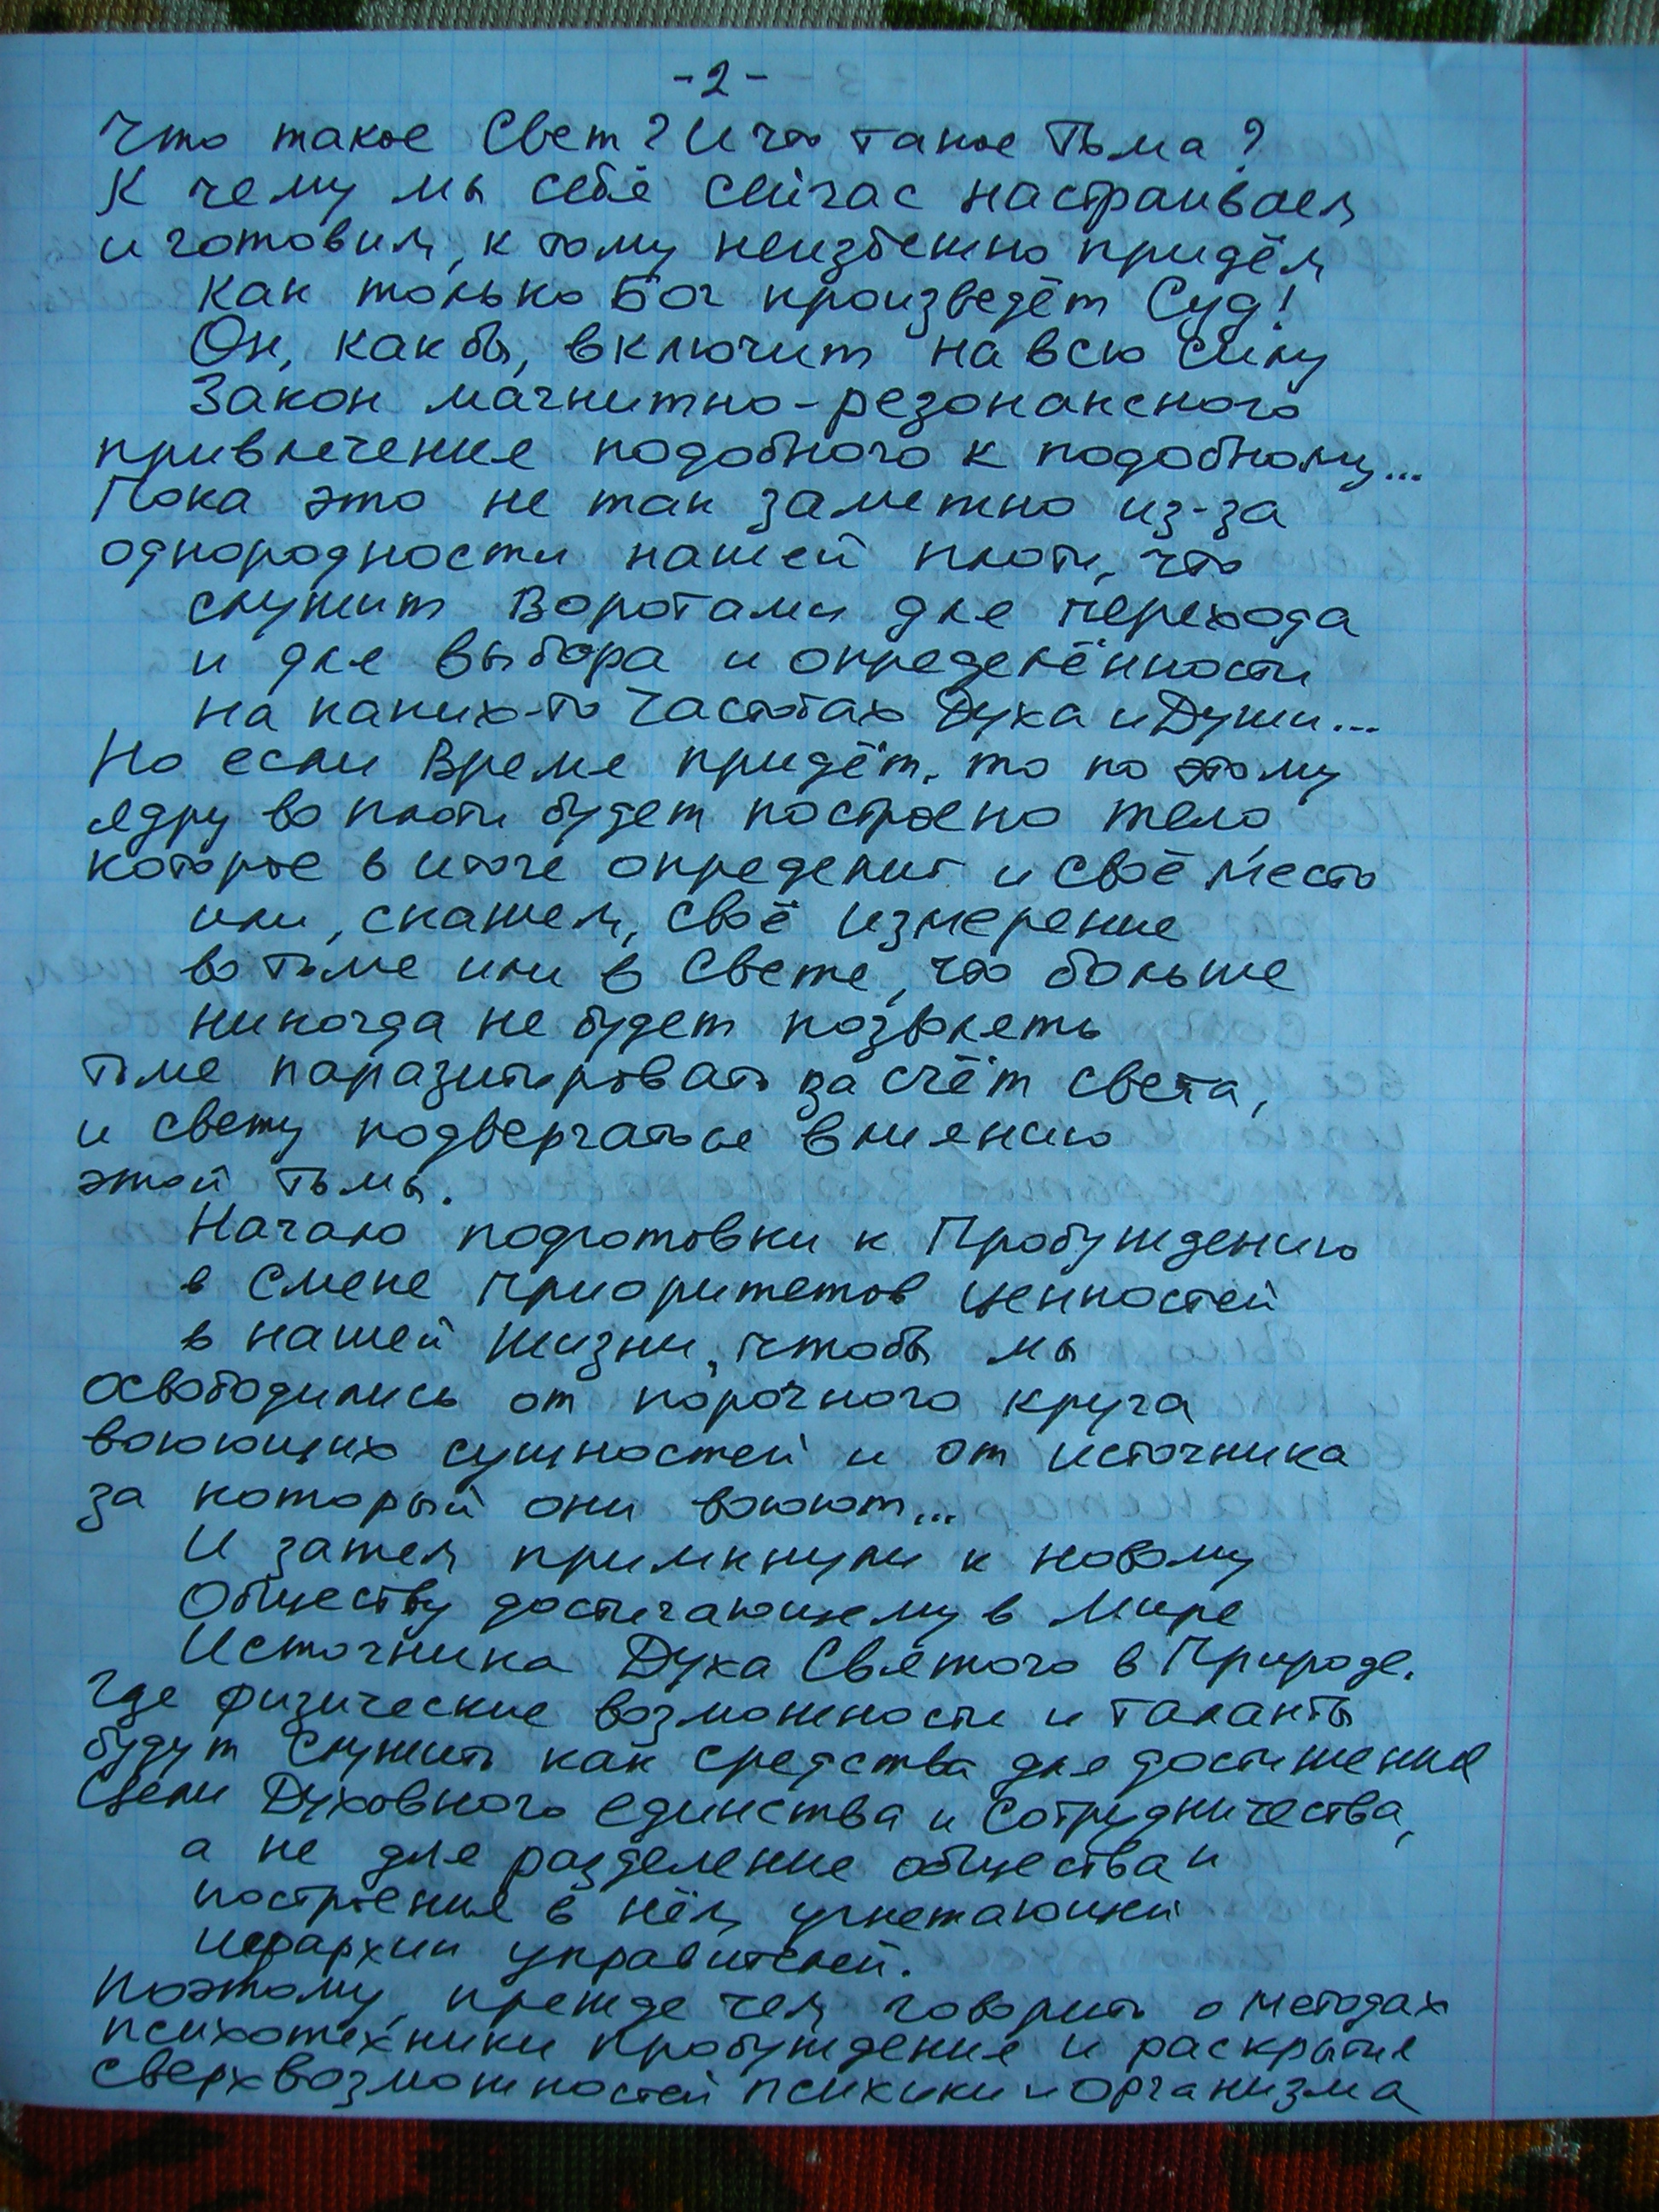 -2-
Что такое Свет? И что такое Тьма?
К чему мы себя сейчас настраиваем
и готовим, к тому неизбежно придём
как только Бог произведёт Суд!
Он, как бы, включит на всю силу
Закон магнитно-резонансного
привлечения подобного к подобному...
Пока это не так заметно из-за
однородности нашей плоти, что
служит Воротами для перехода
и для выбора и определённости
на каких-то Частотах Духа и Души...
Но если Время придёт, то по этому
ядру во плоти будет построено тело,
которое в итоге определит и своё место
или, скажем, своё измерение
во тьме или в Свете, что больше
никогда не будет позволять
тьме паразитировать за счёт света,
и свету подвергаться влиянию
этой тьмы.
Начало подготовки к Пробуждению
в смене приоритетов ценностей
в нашей жизни, чтобы мы
освободились от порочного круга
воюющих сущностей и от источника
за который они воюют...
И затем примкнули к новому
Обществу достигающему в Мире
Источника Духа Святого в Природе.
Где физические возможности и таланты
будут служить как средства для достижения
Цели Духовного единства и сотрудничества,
а не для разделения общества и
построения в нём угнетающей
иерархии управителей.
Поэтому, прежде чем говорить о методах
психотехники пробуждения и раскрытия
сверхвозможностей психики и организма